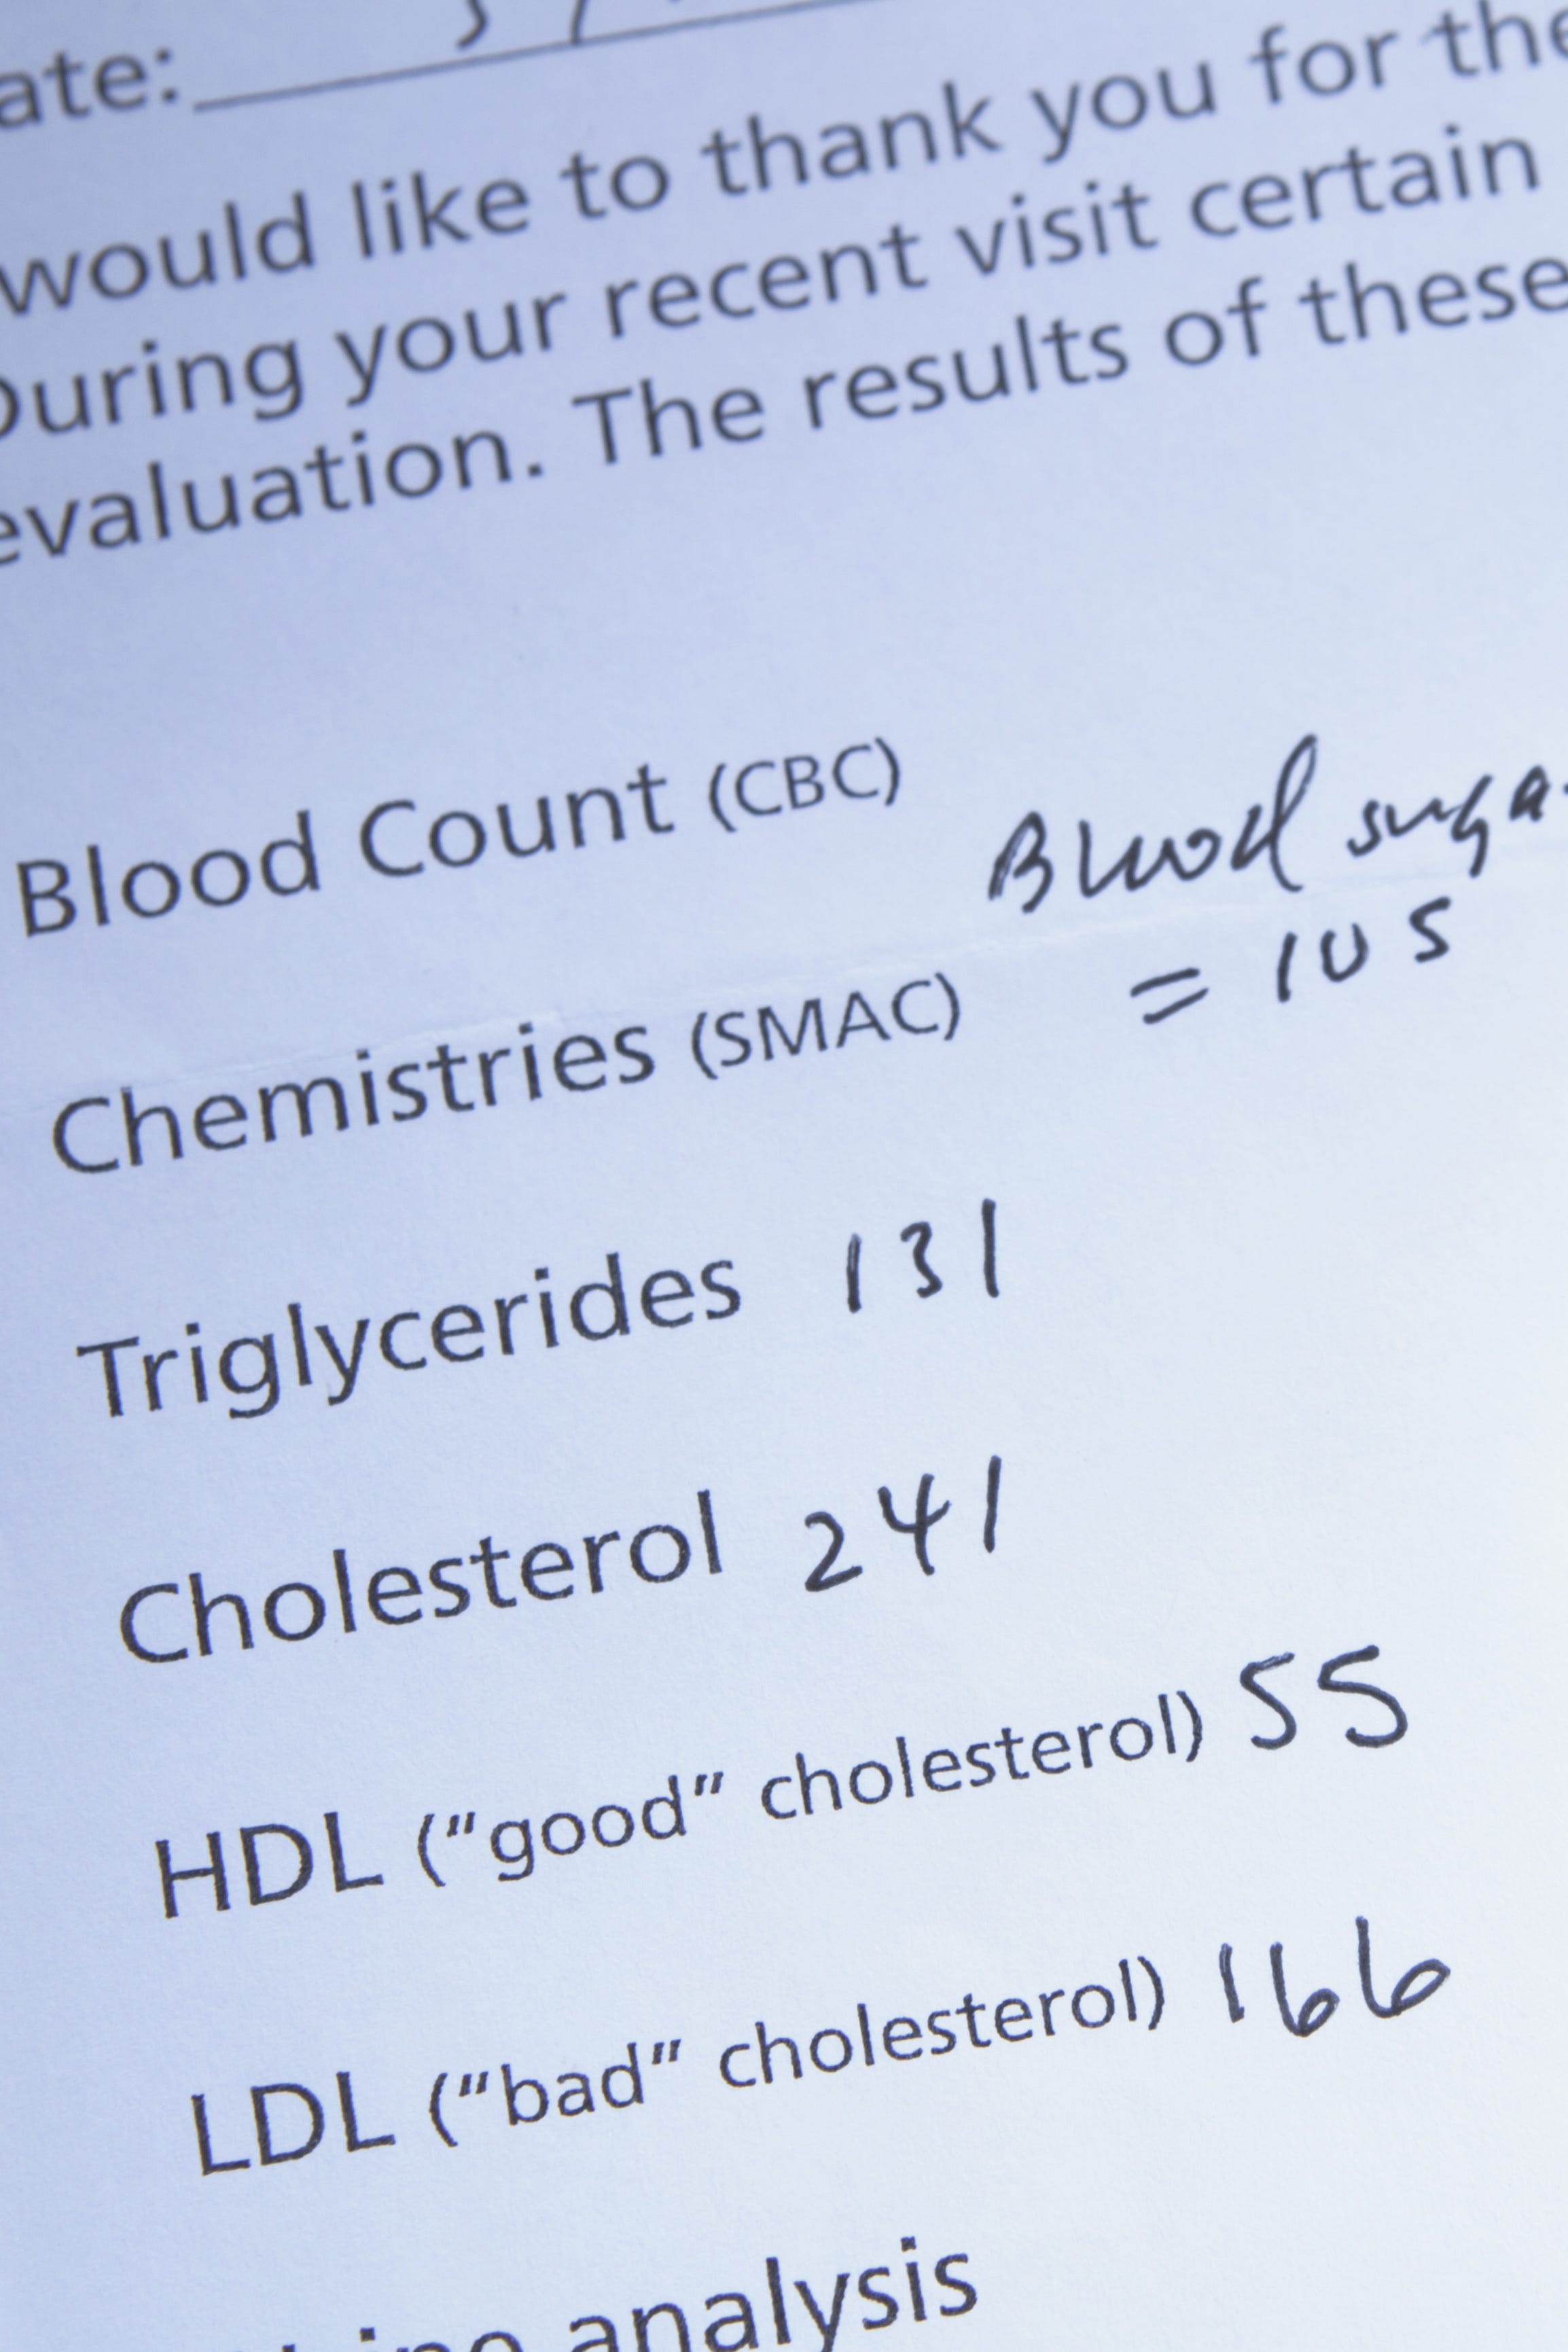 ate:
would like to thank you for the
During your recent visit certain
evaluation. The results of these
Blood Count (CBC)
Blood sugar
= 105
Chemistries (SMAC)
Triglycerides 131
Cholesterol 241
HDL ("good" cholesterol) 55
LDL ("bad" cholesterol) 166
analysis